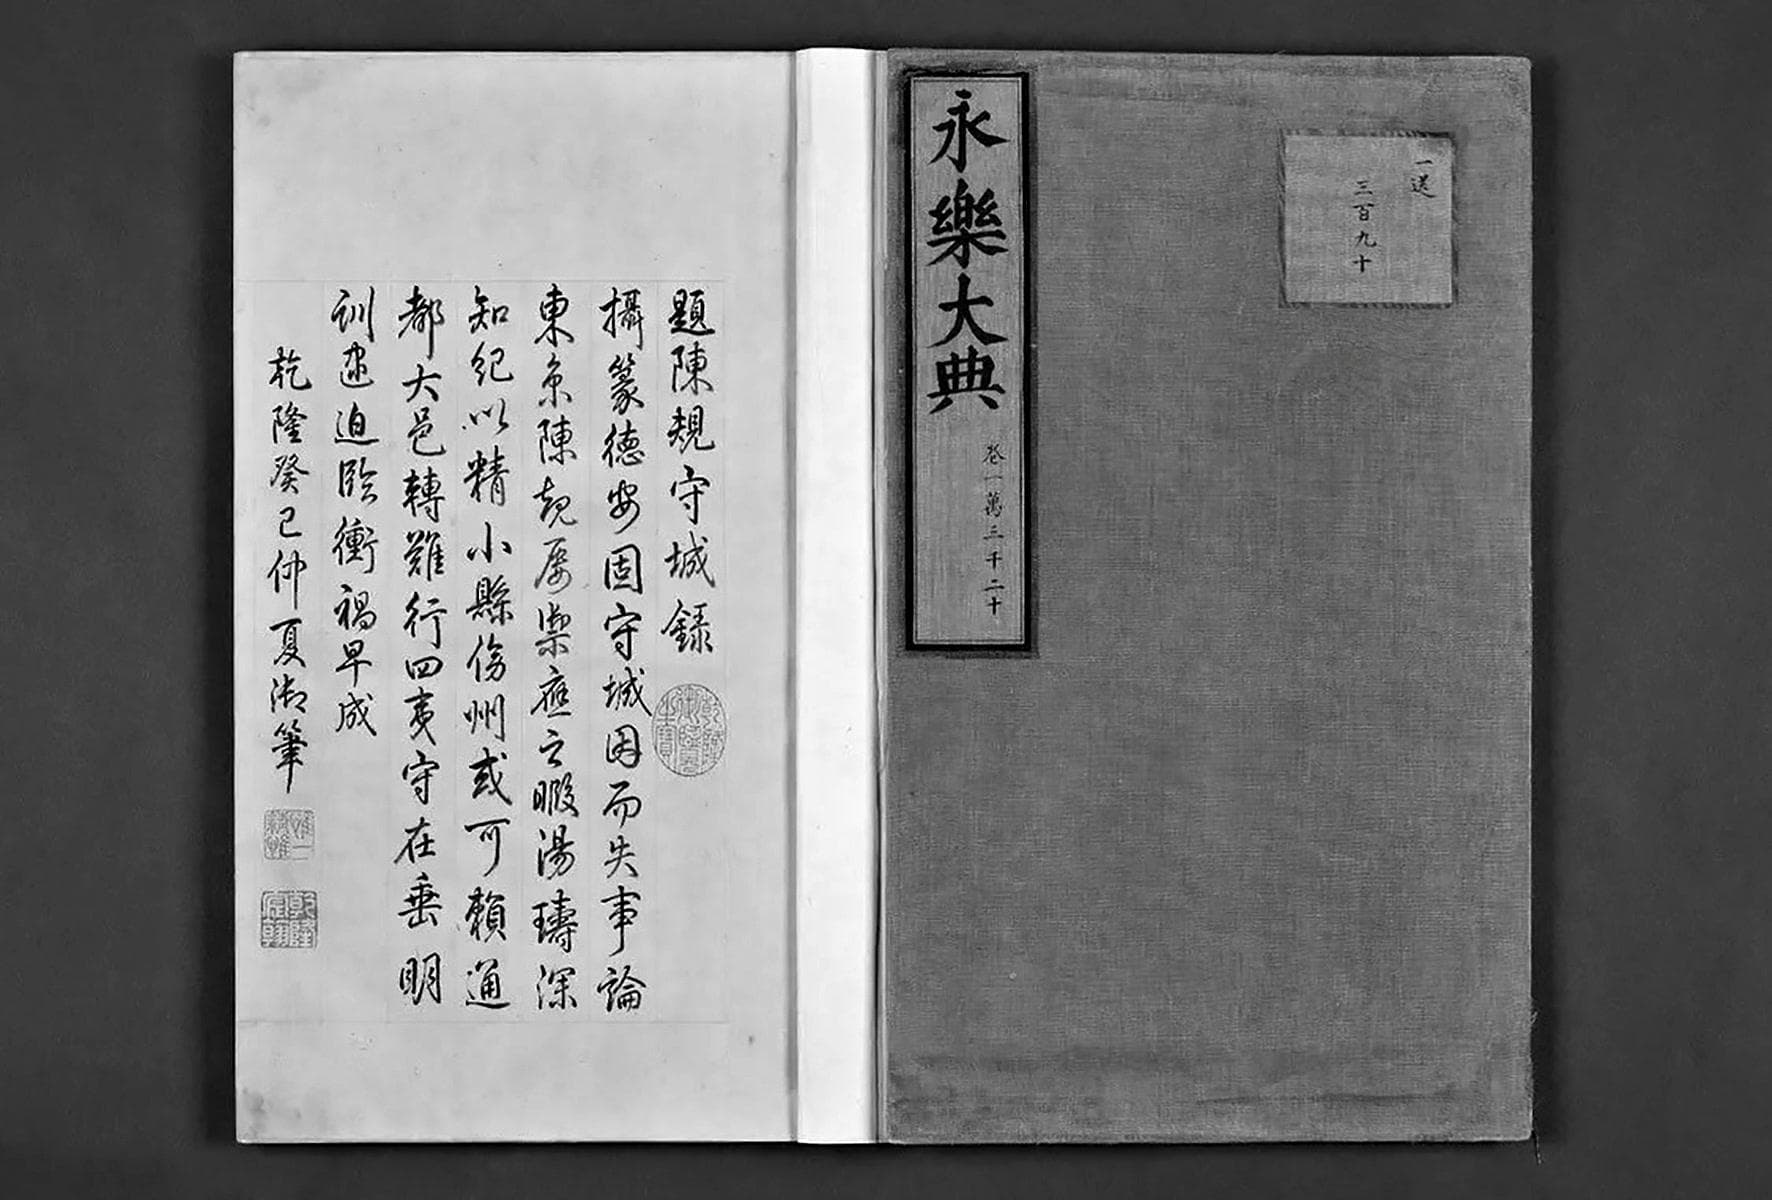 一送
三百九十
永樂大典
卷一萬三千二十
題陳規守城錄
乾隆御覽之寶
攝篆德安固守城因而失事論
東京陳規屡禦應之暇湯璹深
知紀以精小縣傍州或可賴通
都大邑轉難行四夷守在垂明
訓逮迫臨衝禍早成
乾隆癸巳仲夏御筆
乾隆宸翰